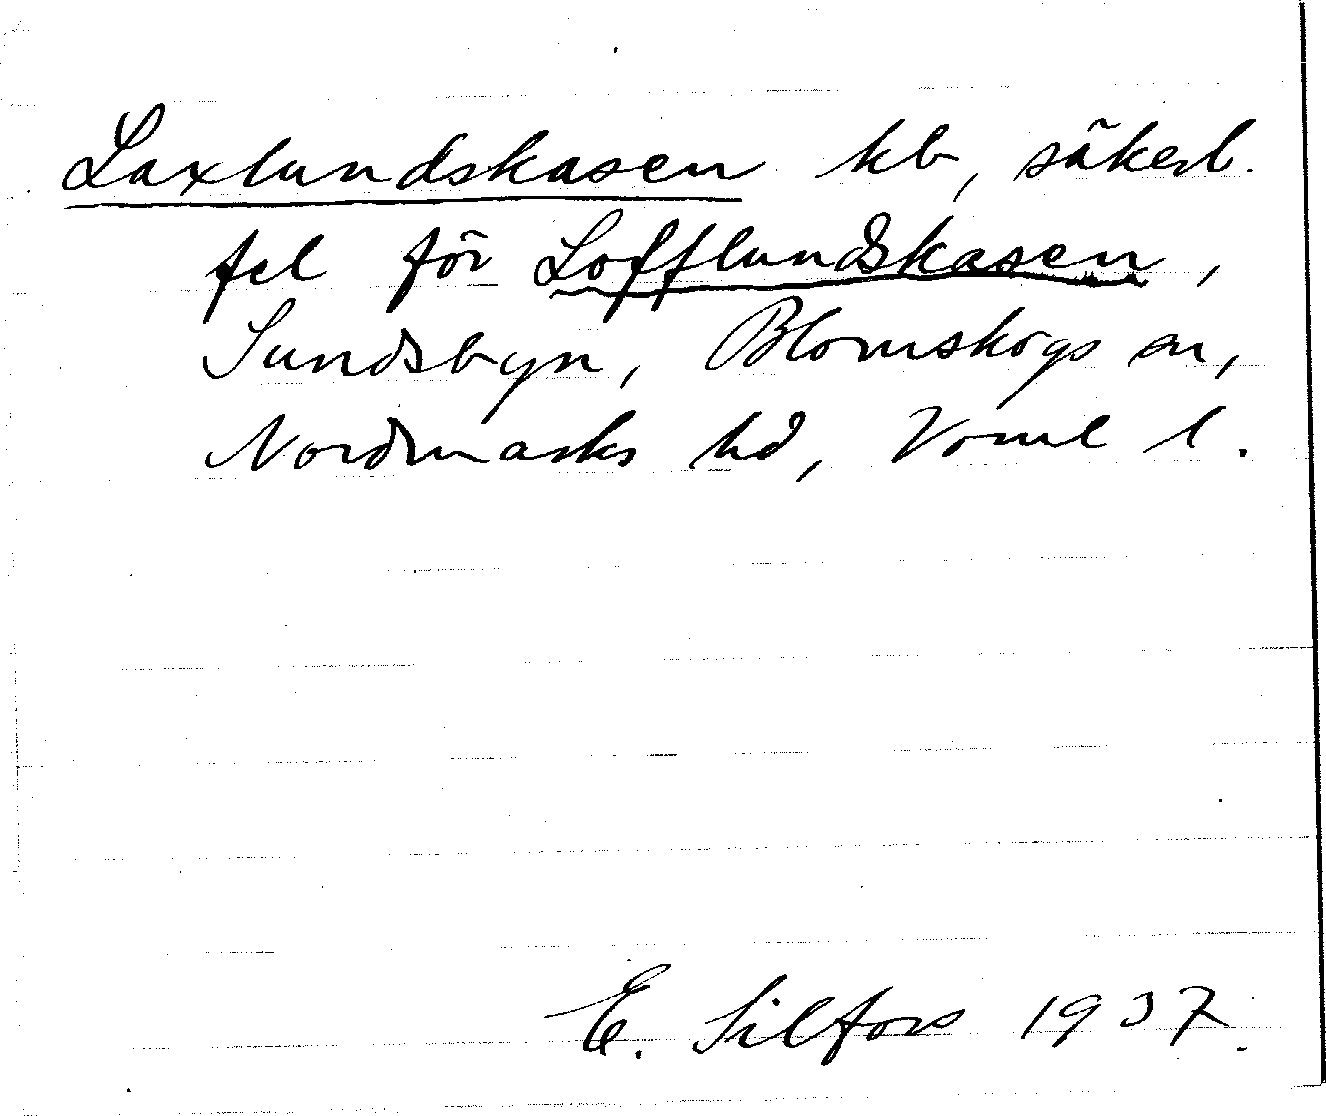 Laxlundskasen kb, säkerl.
fel för Lofflundskasen,
Sundsbyn, Blomskogs sn,
Nordmarks hd, Vrml l.
E. Silfors 1937.